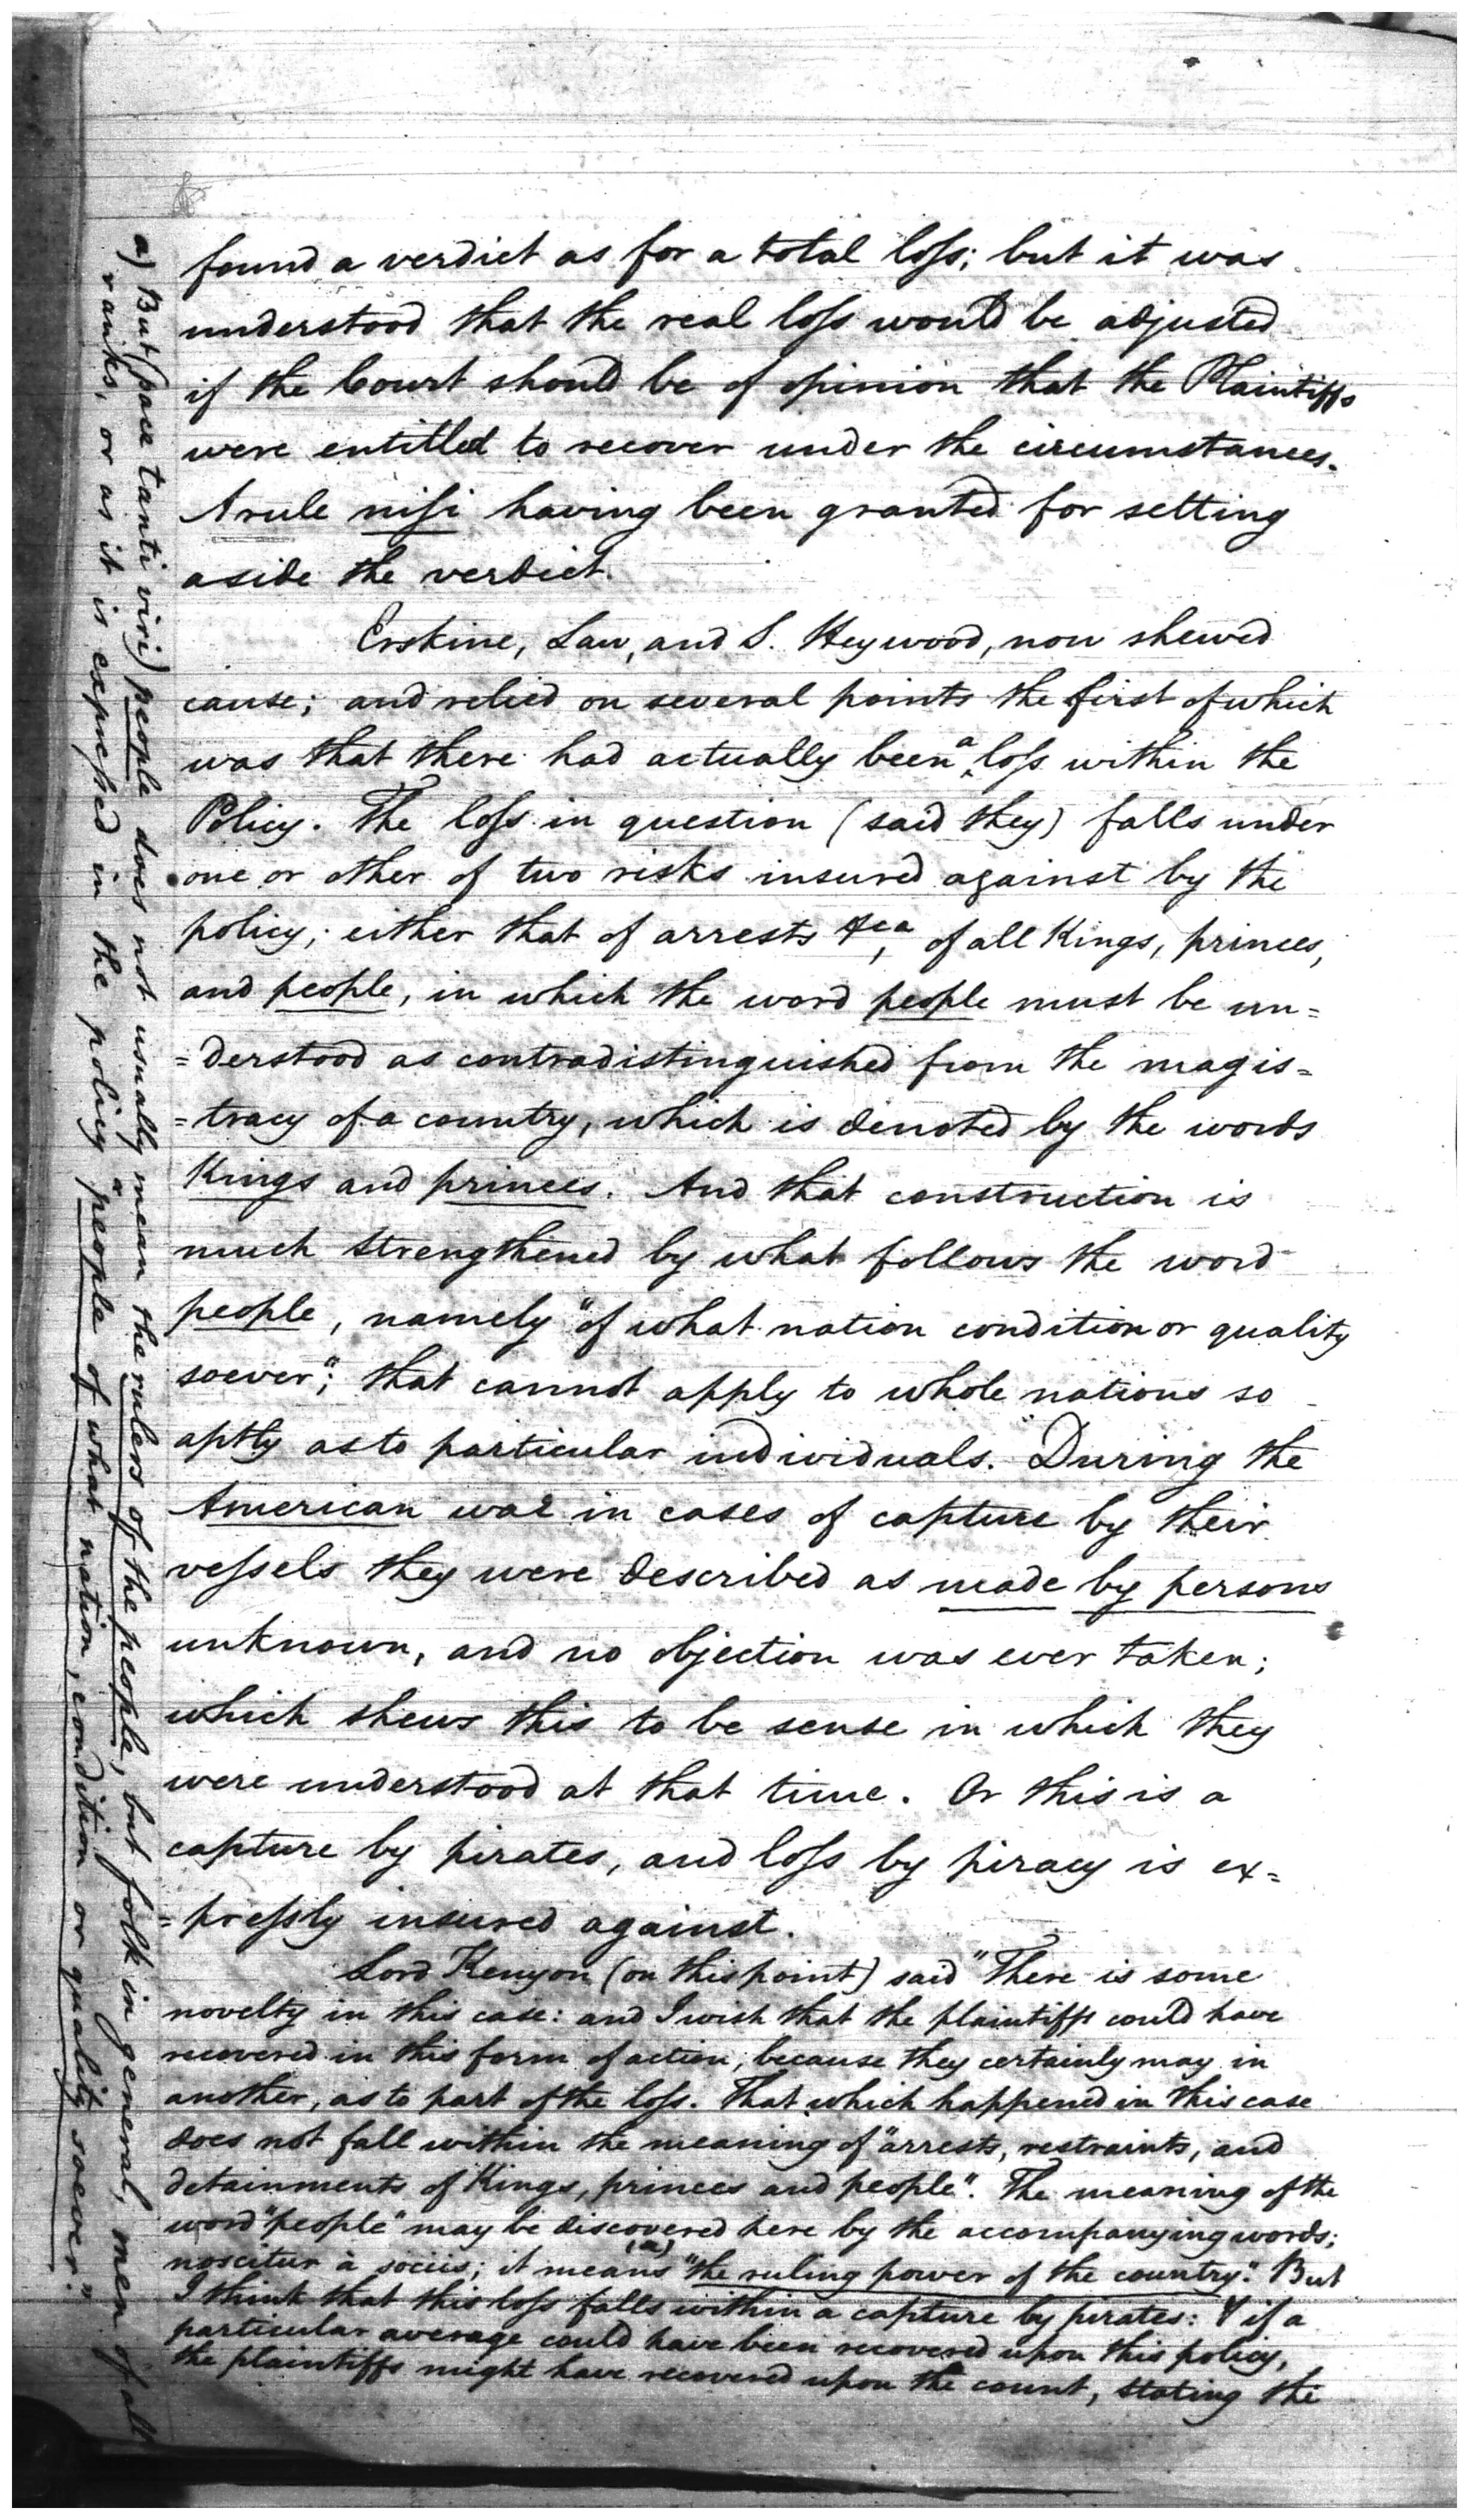 found a verdict as for a total loſs; but it was
understood that the real loſs would be adjusted
if the Court should be of opinion that the Plaintiffs
were entitled to recover under the circumstances.
A rule niſi having been granted for setting
aside the verdict.
Erskine, Law, and S. Heywood, now shewed
cause; and relied on several points the first of which
was that there had actually been a loſs within the
Policy. The loſs in question (said they) falls under
one or other of two risks insured against by the
policy; either that of arrests &ca, of all Kings, princes,
and people, in which the word people must be un=
=derstood as contradistinguished from the magis=
=tracy of a country, which is denoted by the words
Kings and princes. And that construction is
much strengthened by what follows the word
people, namely "of what nation condition or quality
soever"; that cannot apply to whole nations so
aptly as to particular individuals. During the
American war in cases of capture by their
veſsels they were described as made by persons
unknown, and no objection was ever taken;
which shews this to be sense in which they
were understood at that time. Or this is a
capture by pirates, and loſs by piracy is ex=
=preſsly insured against.
Lord Kenyon (on this point) said "There is some
novelty in this case: and I wish that the plaintiffs could have
recovered in this form of action, because they certainly may in
another, as to part of the loſs. That which happened in this case
does not fall within the meaning of "arrests, restraints, and
detainments of Kings, princes and people". The meaning of the
word "people" may be discovered here by the accompanying words;
noscitur à sociis; it means (a) "the ruling power of the country". But
I think that this loſs falls within a capture by pirates: & if a
particular average could have been recovered upon this policy,
the plaintiffs might have recovered upon the count, stating the
a) But (pace tanti viri) people does not usually mean the rulers of the people, but folk in general, men of all
ranks, or as it is expreſsed in the policy "people of what nation, condition or quality soever".